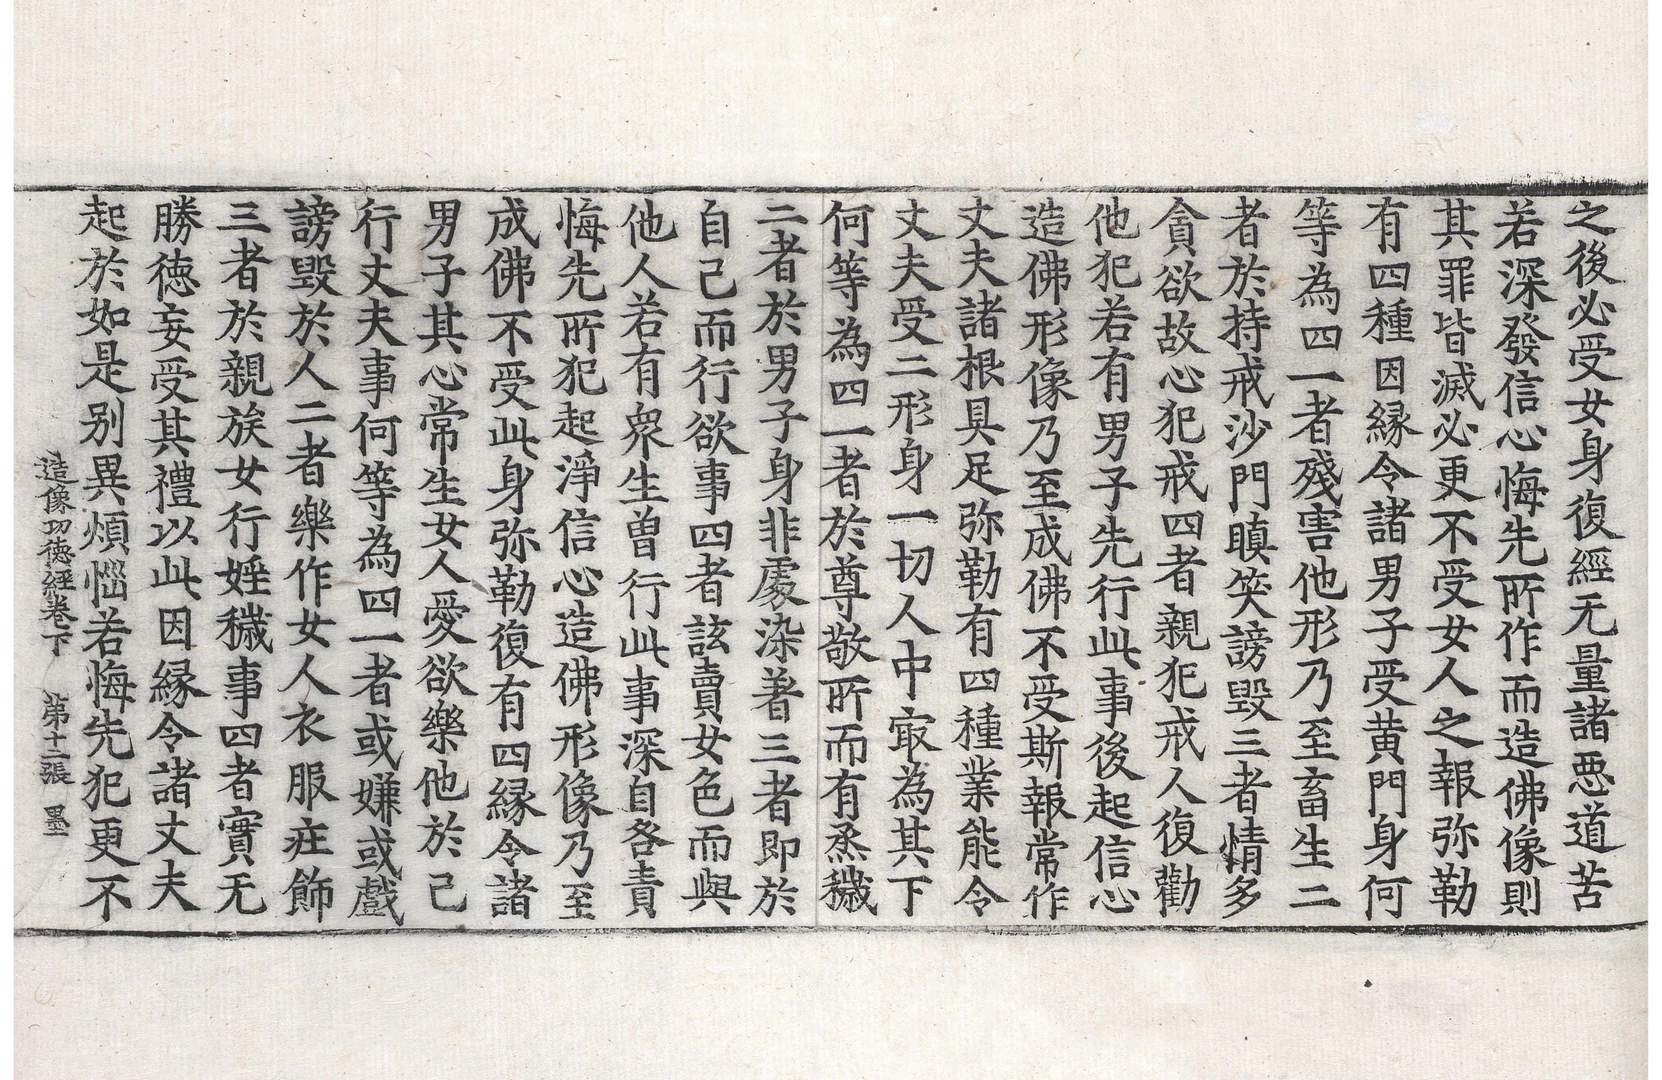 之後必受女身復經无量諸惡道苦
若深發信心悔先所作而造佛像則
其罪皆滅必更不受女人之報弥勒
有四種因緣令諸男子受黄門身何
等為四一者殘害他形乃至畜生二
者於持戒沙門瞋笑謗毀三者情多
貪欲故心犯戒四者親犯戒人復勸
他犯若有男子先行此事後起信心
造佛形像乃至成佛不受斯報常作
丈夫諸根具足弥勒有四種業能令
丈夫受二形身一切人中㝡為其下
何等為四一者於尊敬所而有烝穢
二者於男子身非處染著三者即於
自己而行欲事四者詃賣女色而與
他人若有衆生曾行此事深自咎責
悔先所犯起淨信心造佛形像乃至
成佛不受此身弥勒復有四緣令諸
男子其心常生女人愛欲樂他於己
行丈夫事何等為四一者或嫌或戲
謗毀於人二者樂作女人衣服庄飾
三者於親族女行婬穢事四者實无
勝徳妄受其禮以此因緣令諸丈夫
起於如是别異煩惱若悔先犯更不
造像功徳經卷下　第十二張　墨